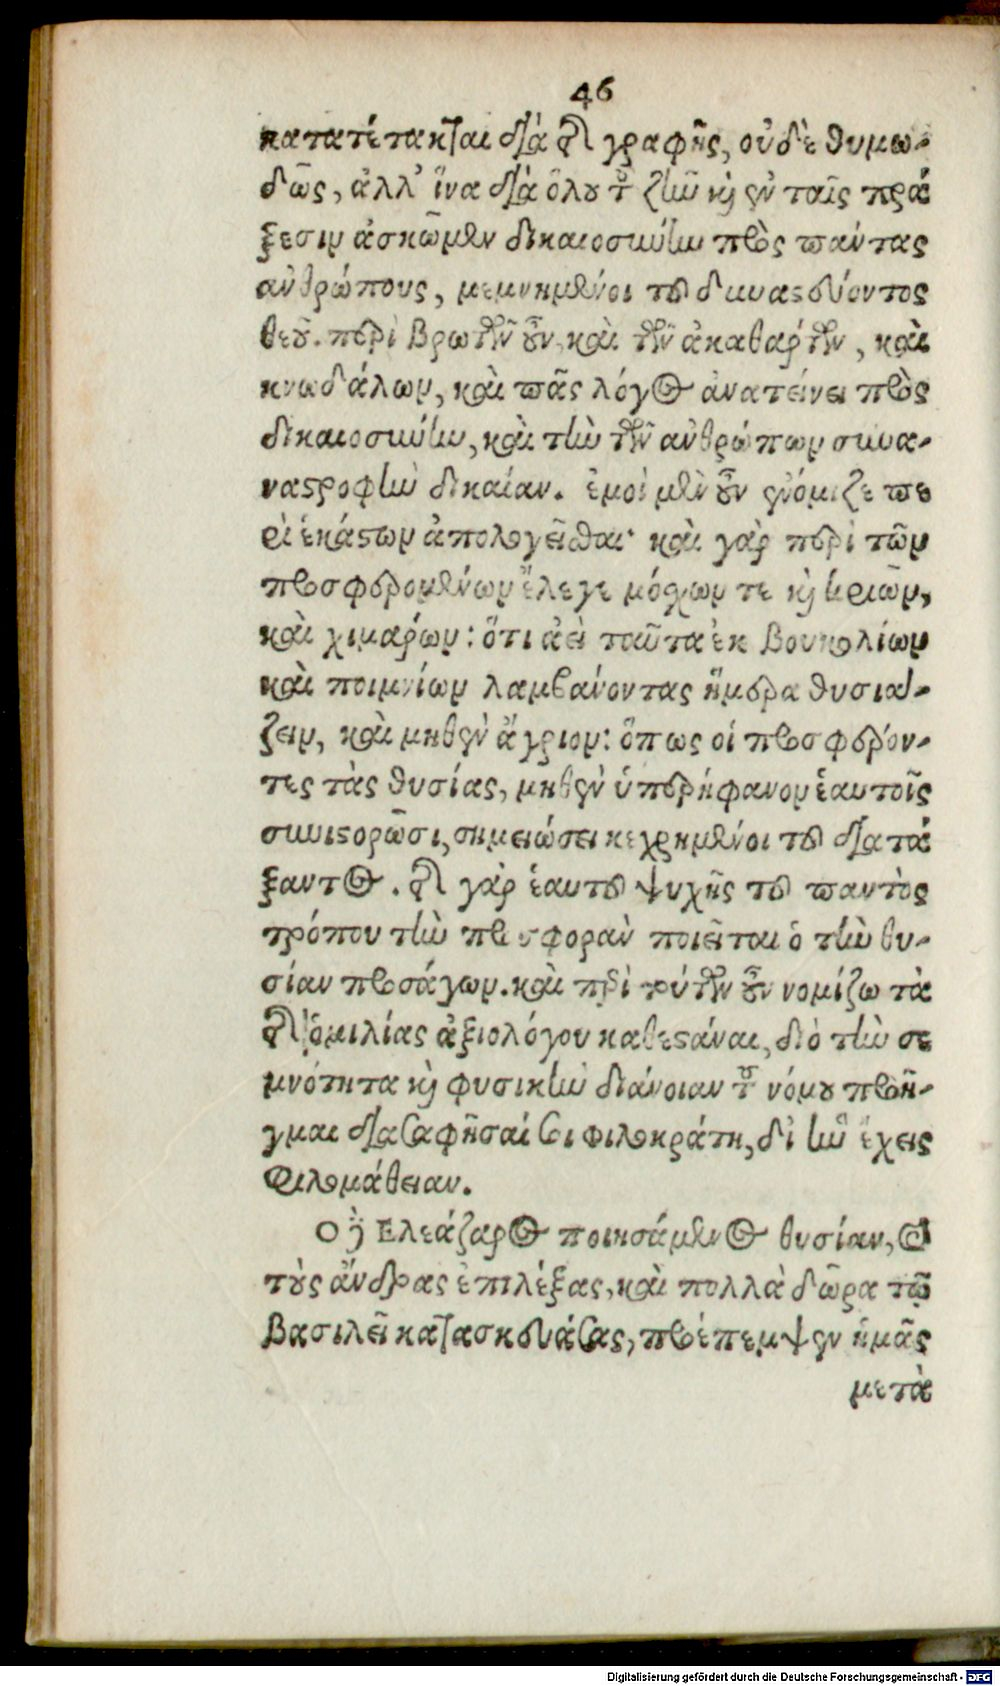 46
κατατέτακται διὰ τῆς γραφῆς, οὐδὲ θυμω-
δῶς, ἀλλ’ ἵνα διὰ ὅλου τοῦ ζῆν καὶ ἐν ταῖς πρά
ξεσιν ἀσκῶμεν δικαιοσύνην πρὸς πάντας
ἀνθρώπους, μεμνημένοι τοῦ δυναστεύοντος
θεοῦ. περὶ βρωτῶν οὖν, καὶ τῶν ἀκαθάρτων, καὶ
κνωδάλων, καὶ πᾶς λόγος ἀνατείνει πρὸς
δικαιοσύνην, καὶ τὴν τῶν ἀνθρώπων συνα-
ναστροφὴν δικαίαν. ἐμοὶ μὲν οὖν ἐνόμιζε πε
ρὶ ἑκάστων ἀπολογεῖσθαι· καὶ γὰρ περὶ τῶν
προσφερομένων ἔλεγε μόσχων τε καὶ κριῶν,
καὶ χιμάρων: ὅτι ἀεὶ ταῦτα ἐκ βουκολίων
καὶ ποιμνίων λαμβάνοντας ἥμερα θυσιά-
ζειν, καὶ μηθὲν ἄγριον: ὅπως οἱ προσφέρον-
τες τὰς θυσίας, μηθὲν ὑπερήφανον ἑαυτοῖς
συνιστορῶσι, σημειώσει κεχρημένοι τοῦ διατά
ξαντος. τῆς γὰρ ἑαυτοῦ ψυχῆς τοῦ παντὸς
τρόπου τὴν προσφορὰν ποιεῖται ὁ τὴν θυ-
σίαν προσάγων. καὶ περὶ τούτων οὖν νομίζω τὰ
τῆς ὁμιλίας ἀξιολόγου καθεστάναι, διὸ τὴν σε
μνότητα καὶ φυσικὴν διάνοιαν τοῦ νόμου προῆ-
γμαι διασαφῆσαί σοι Φιλοκράτη, δι’ ἣν ἔχεις
φιλομάθειαν.
Ο δὲ Ελεάζαρος ποιησάμενος θυσίαν, καὶ
τοὺς ἄνδρας ἐπιλέξας, καὶ πολλὰ δῶρα τῷ
βασιλεῖ κατασκευάσας, προέπεμψεν ἡμᾶς
μετὰ
Digitalisierung gefördert durch die Deutsche Forschungsgemeinschaft - DFG